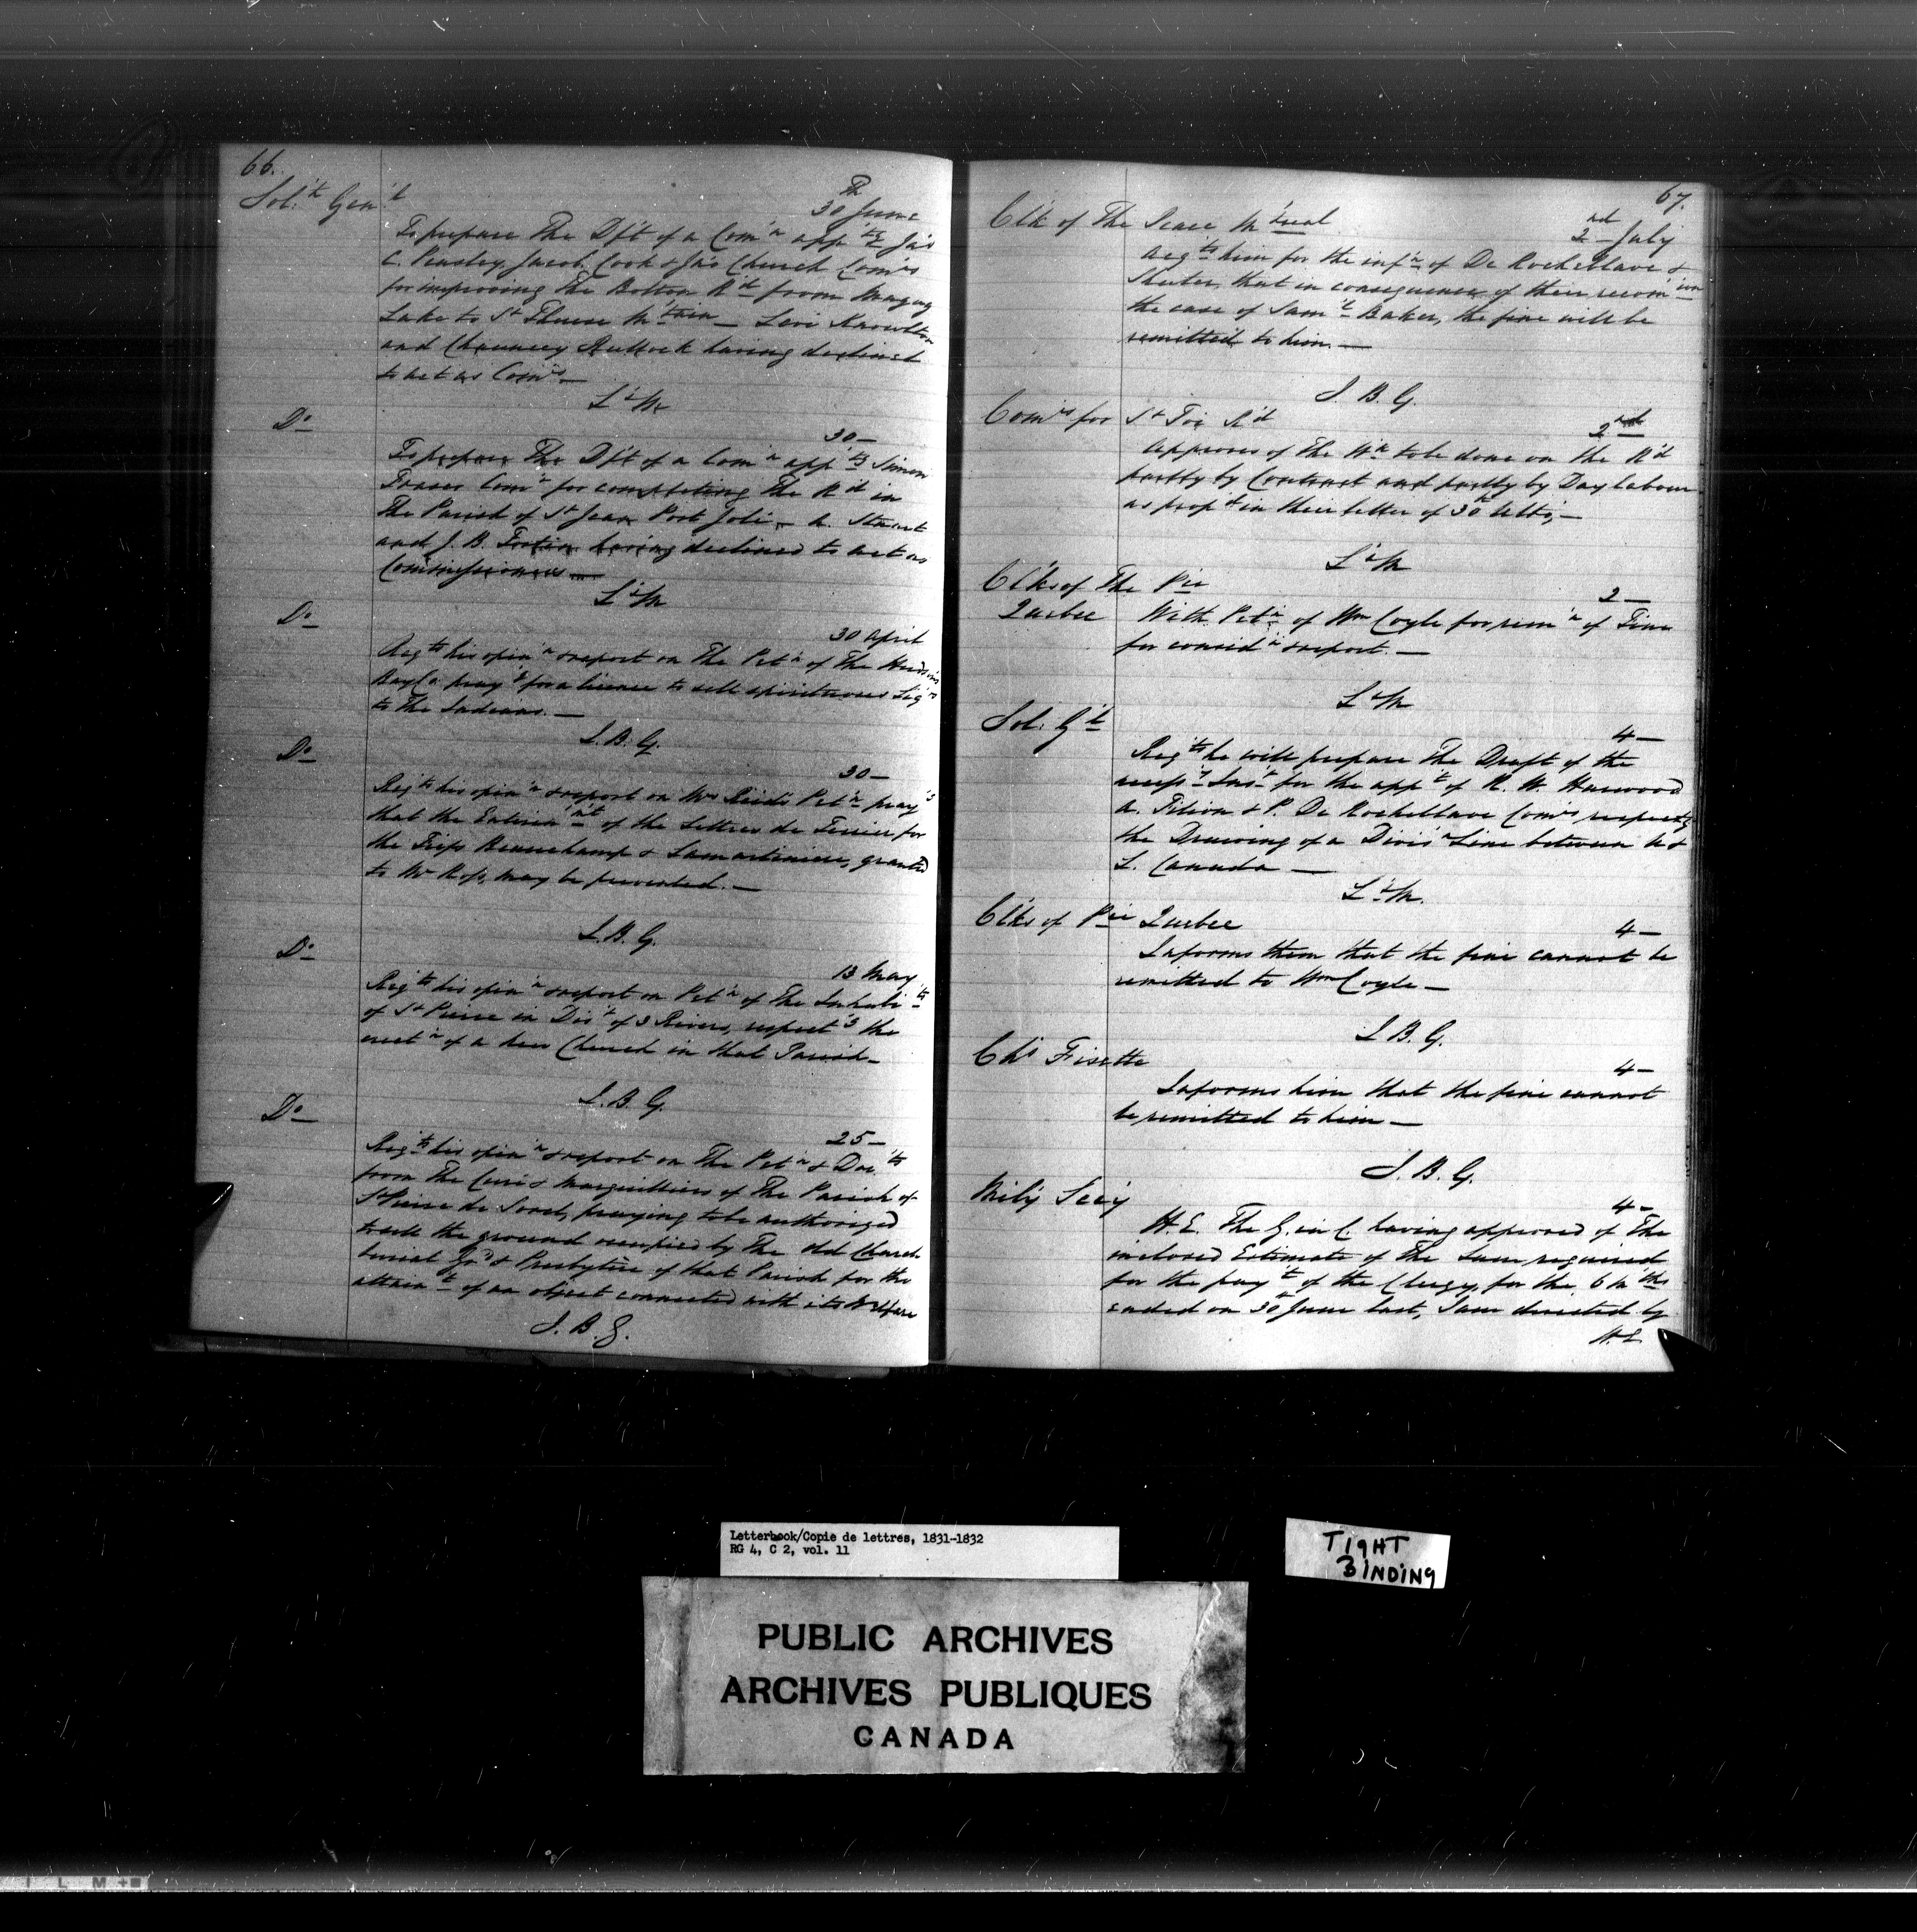 66.
Sol.r Gen.l
30th June
To prepare The Dft of a Com.n app.tg Ja.s
C. Peasley, Jacob Cook & Ja.s Church Com.rs
for improving the Bolton R.d from Magog
Lake to S.t Therese M.tain — Levi Knowlton
and Chauncey Bullock having declined
to act as Com.rs —
L.s M
D.o
30 —
To prepare The Dft of a Com.n app.tg Simon
Fraser Com.r for completing the R.d in
The Parish of S.t Jean Port Joli, — A. Stuart
and J. B. Fortin having declined to act as
Commissioners —
L.s M
D.o
30 April
Reqts his opin.n & report on The Pet.n of The Hudson's
Bay Co. pray.g for a licence to sell spirituous Liq.rs
to The Indians. —
J. B. G.
D.o
30 —
Reqts his opin.n & report on Mr Reid's Pet.n pray.g
that the Enterin.mt of the Lettres de Terrier for
the Fiefs Beauchamp & Lamartiniere, granted
to Mr Ross, may be prevented. —
J. B. G.
D.o
13 May
Reqts his opin.n & report on Pet.n of The Inhabi.ts
of S.t Pierre in Dis.t of 3 Rivers, respect.g the
erect.n of a new Church in that Parish —
J. B. G.
D.o
25 —
Reqts his opin.n & report on The Pet.n & Doc.ts
from The Curé & Marguilliers of The Parish of
S.t Pierre de Sorel, praying to be authorized
to sell the ground occupied by The old Church
burial Gr.d & Presbytere of that Parish for the
attain.t of an object connected with its Welfare
J. B. G.
67.
Clk of The Peace M.treal
2nd July
Reqts him for the inf.n of De Rocheblave &
Shuter, that in consequence of their recom.ion
the case of Sam.l Baker, the fine will be
remitted to him. —
J. B. G.
Com.rs for S.t Foi R.d
2nd
Approves of The W.k to be done on the R.d
partly by Contract and partly by Day labour
as prop.d in their letter of 30th Ulto, —
L.s M
Clks of The P.ce
Quebec
2 —
With Pet.n of Wm Coyle for rem.n of Fine
for consid.n & report. —
L.s M
Sol: G.l
4 —
Reqts he will prepare The Draft of the
necess.y Ins.t for the app.t of R. W. Harwood
A. Filion & P. De Rocheblave Com.rs respectg
the Drawing of a Divis.n Line between U &
L. Canada —
L.s M.
Clks of P.ce Quebec
4 —
Informs them that the fine cannot be
remitted to Wm Coyle —
J. B. G.
Chs Fisette
4 —
Informs him that the fine cannot
be remitted to him —
J. B. G.
Mily Secy
4 —
H. E. The G. in C. having approved of The
inclosed Estimate of The Sum required
for the pay.t of the Clergy, for the 6 m.ths
ended on 30th June last, I am directed by
H. E.
Letterbook/Copie de lettres, 1831-1832
RG 4, C 2, vol. 11
TIGHT
BINDING
PUBLIC ARCHIVES
ARCHIVES PUBLIQUES
CANADA